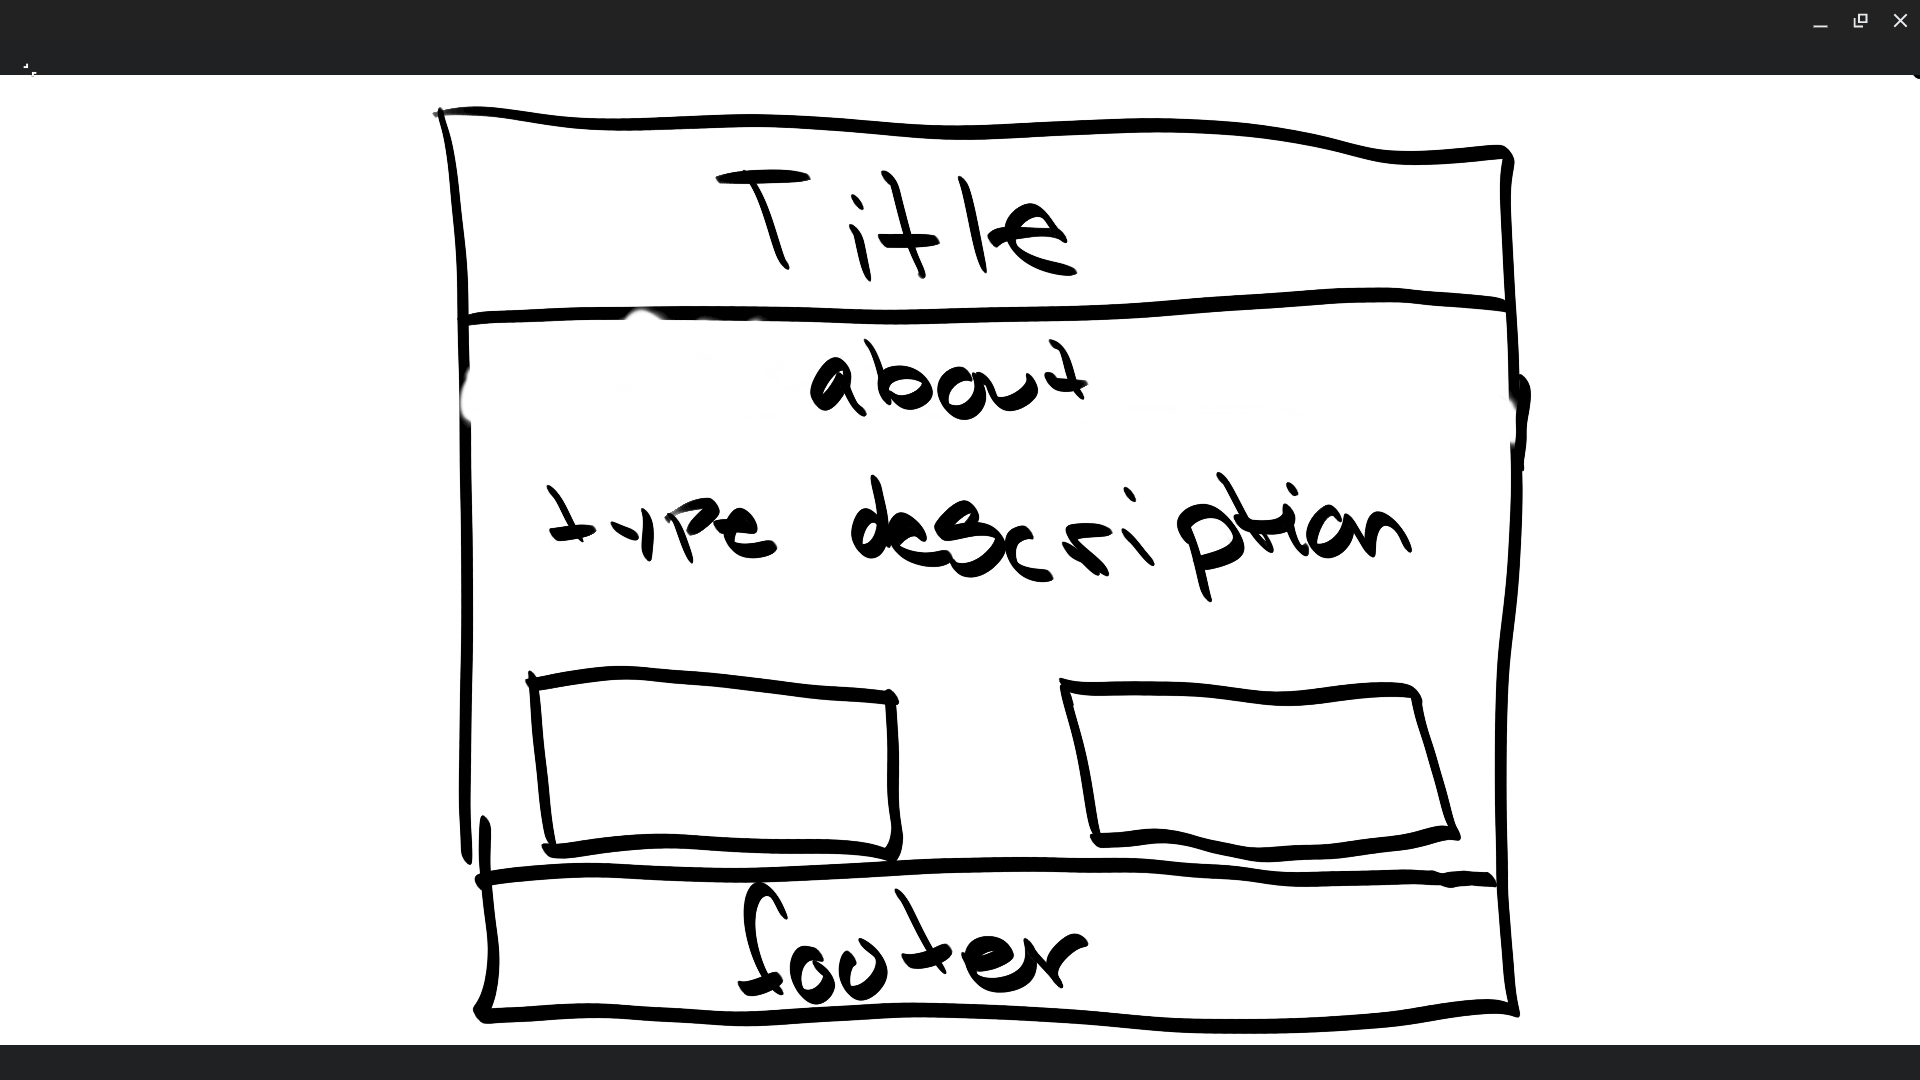 Title
about
type description
footer